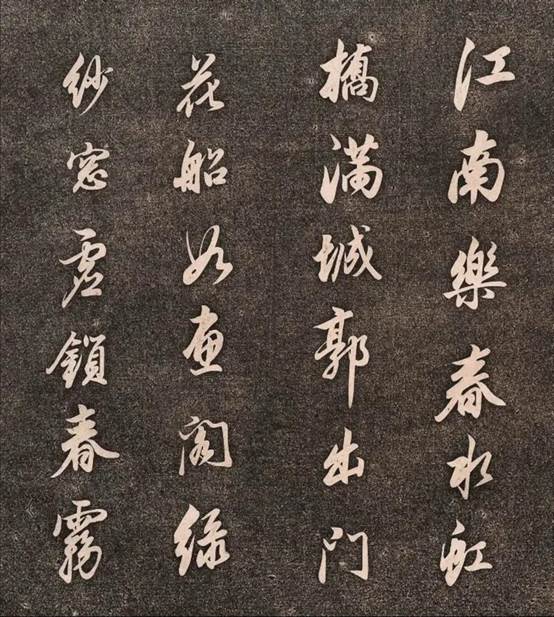 江南樂春水虹
橋滿城郭出門
花船如畫閣綠
紗窓虛鎖春霧